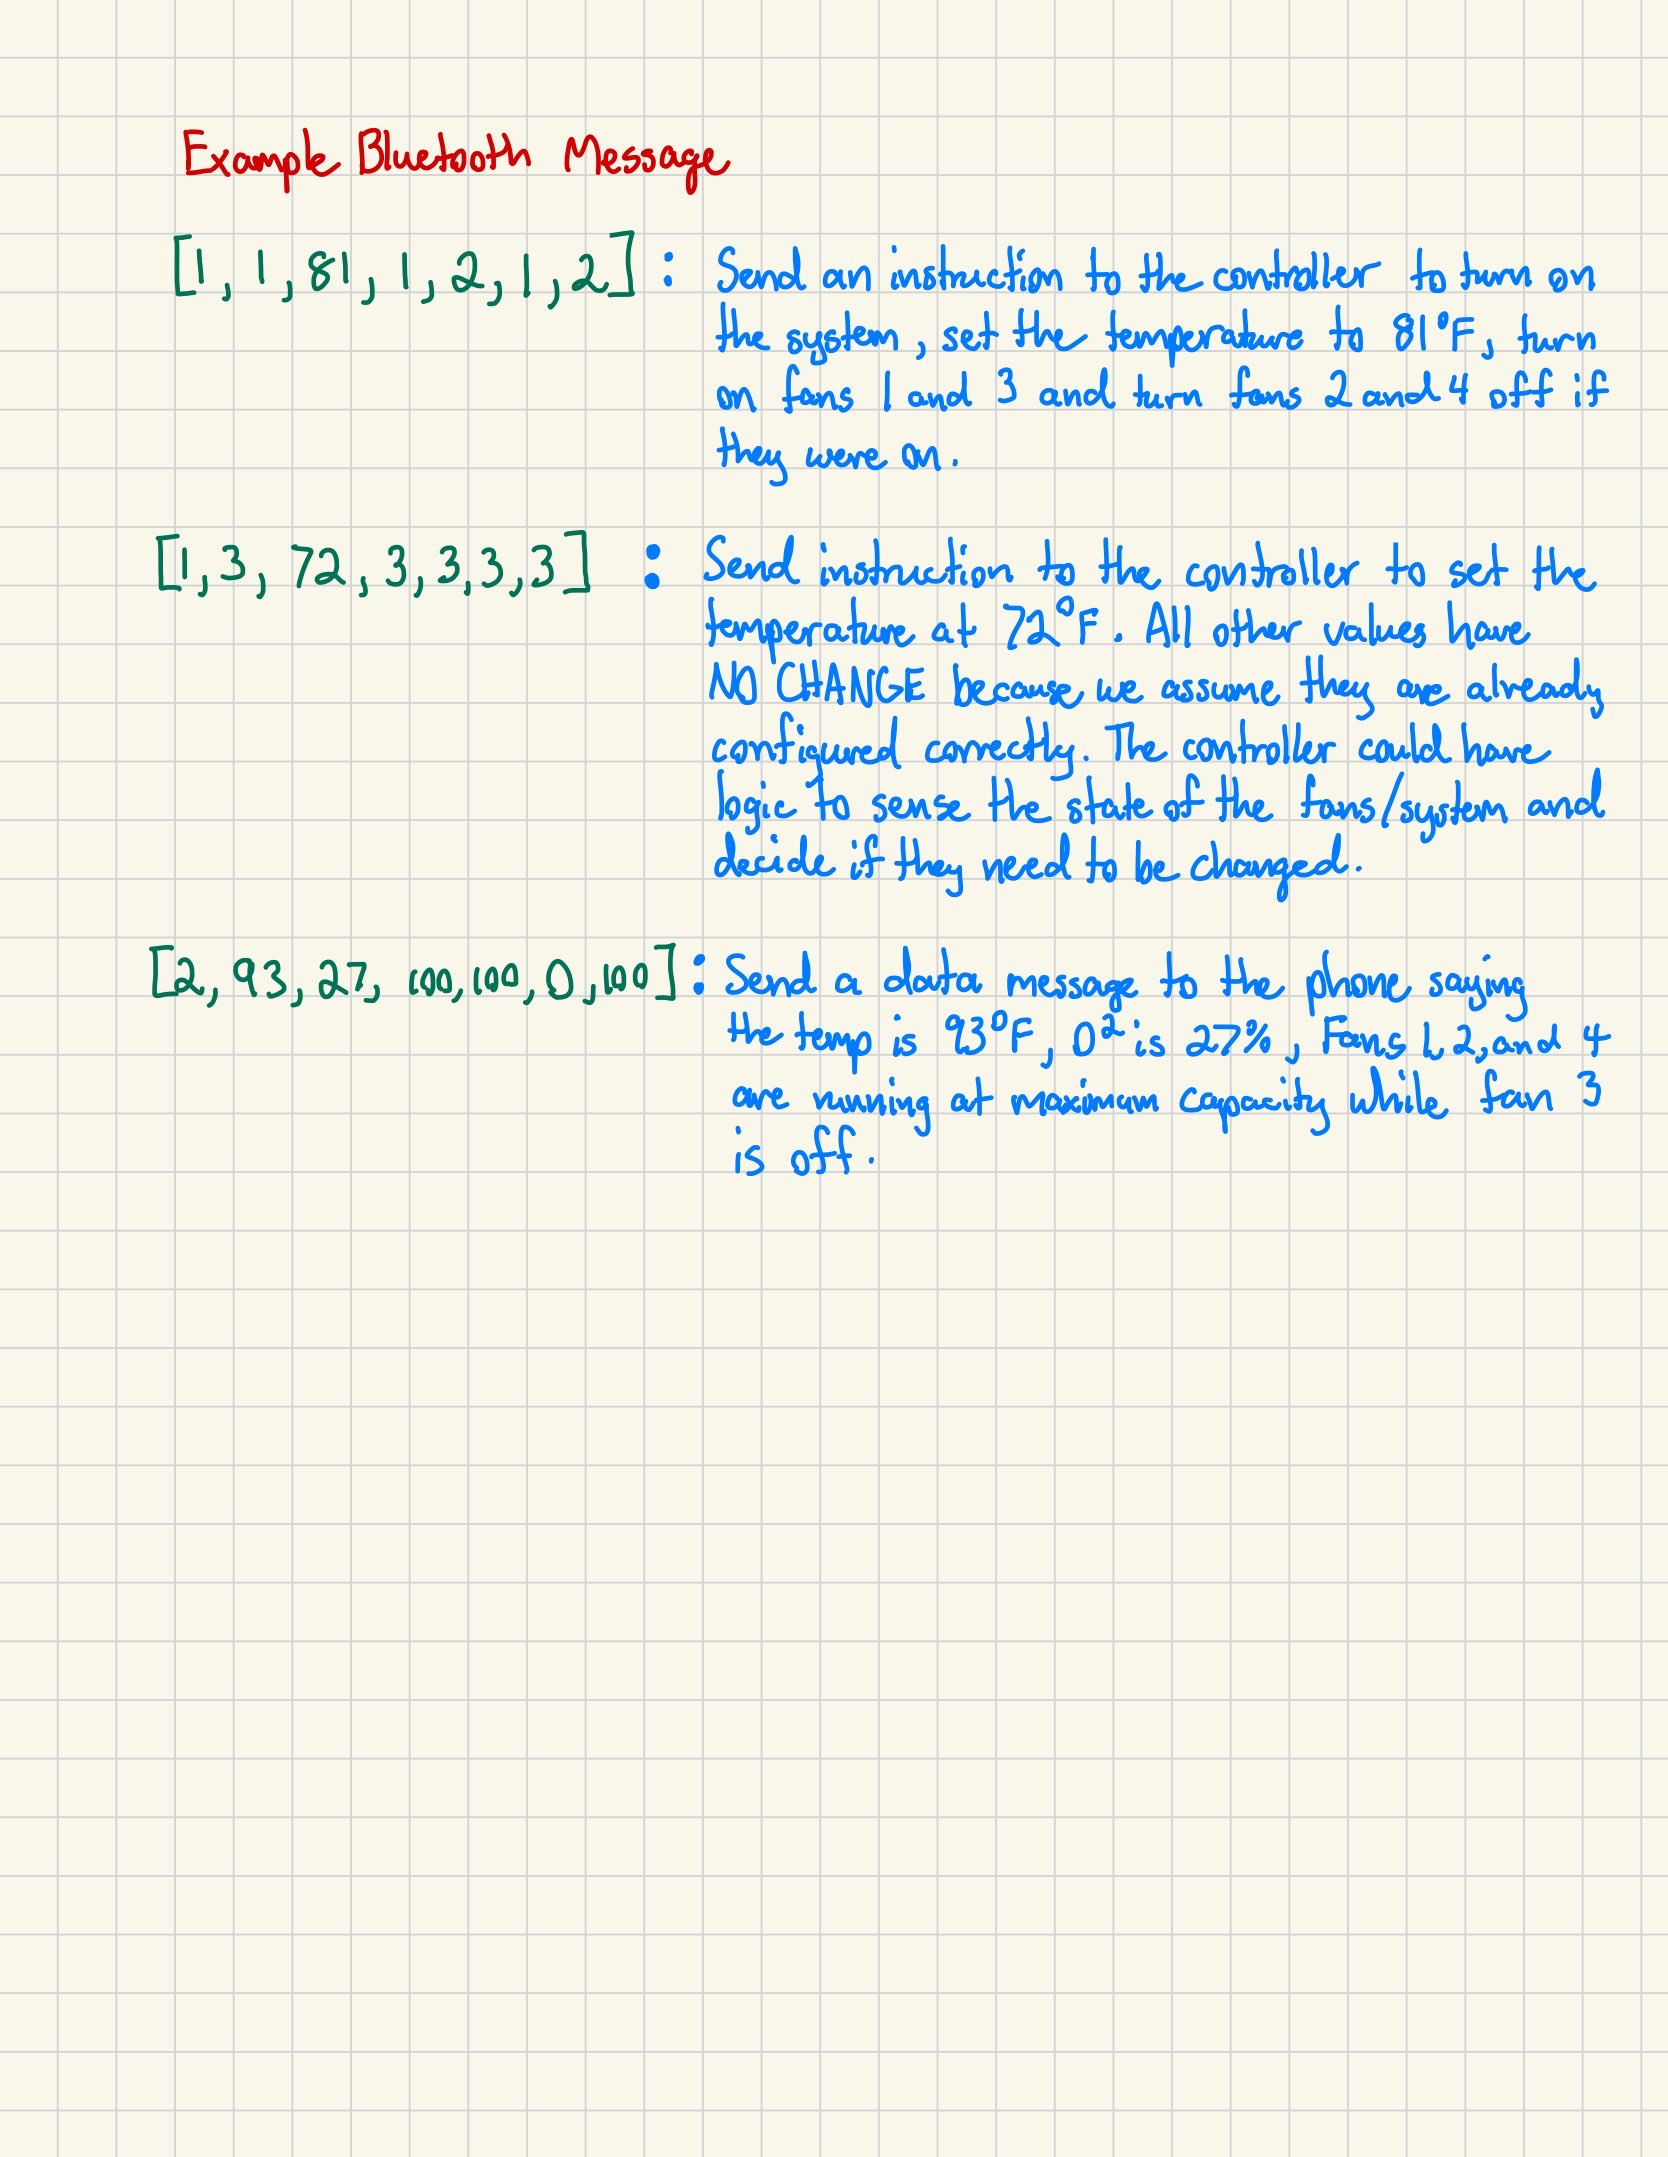 Example Bluetooth Message
[1, 1, 81, 1, 2, 1, 2] : Send an instruction to the controller to turn on
the system, set the temperature to 81°F, turn
on fans 1 and 3 and turn fans 2 and 4 off if
they were on.
[1, 3, 72, 3, 3, 3, 3] : Send instruction to the controller to set the
temperature at 72°F. All other values have
NO CHANGE because we assume they are already
configured correctly. The controller could have
logic to sense the state of the fans/system and
decide if they need to be changed.
[2, 93, 27, 100, 100, 0, 100] : Send a data message to the phone saying
the temp is 93°F, O² is 27%, Fans 1, 2, and 4
are running at maximum capacity while fan 3
is off.